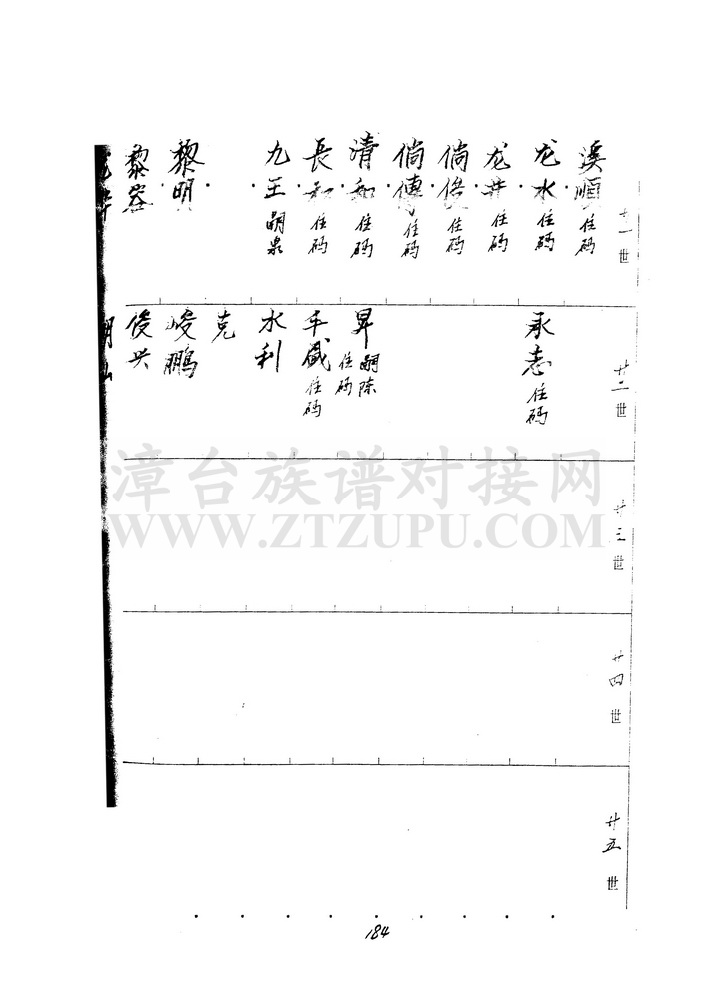 廿一世
溪順住码
龙水住码
龙井住码
倘俊住码
倘傳住码
清和住码
長和住码
九王嗣泉
黎明
黎容
廿二世
承志住码
昇嗣陈住码
千盛住码
水利
克
峻鹏
俊兴
廿三世
廿四世
廿五世
漳台族谱对接网
WWW.ZTZUPU.COM
184